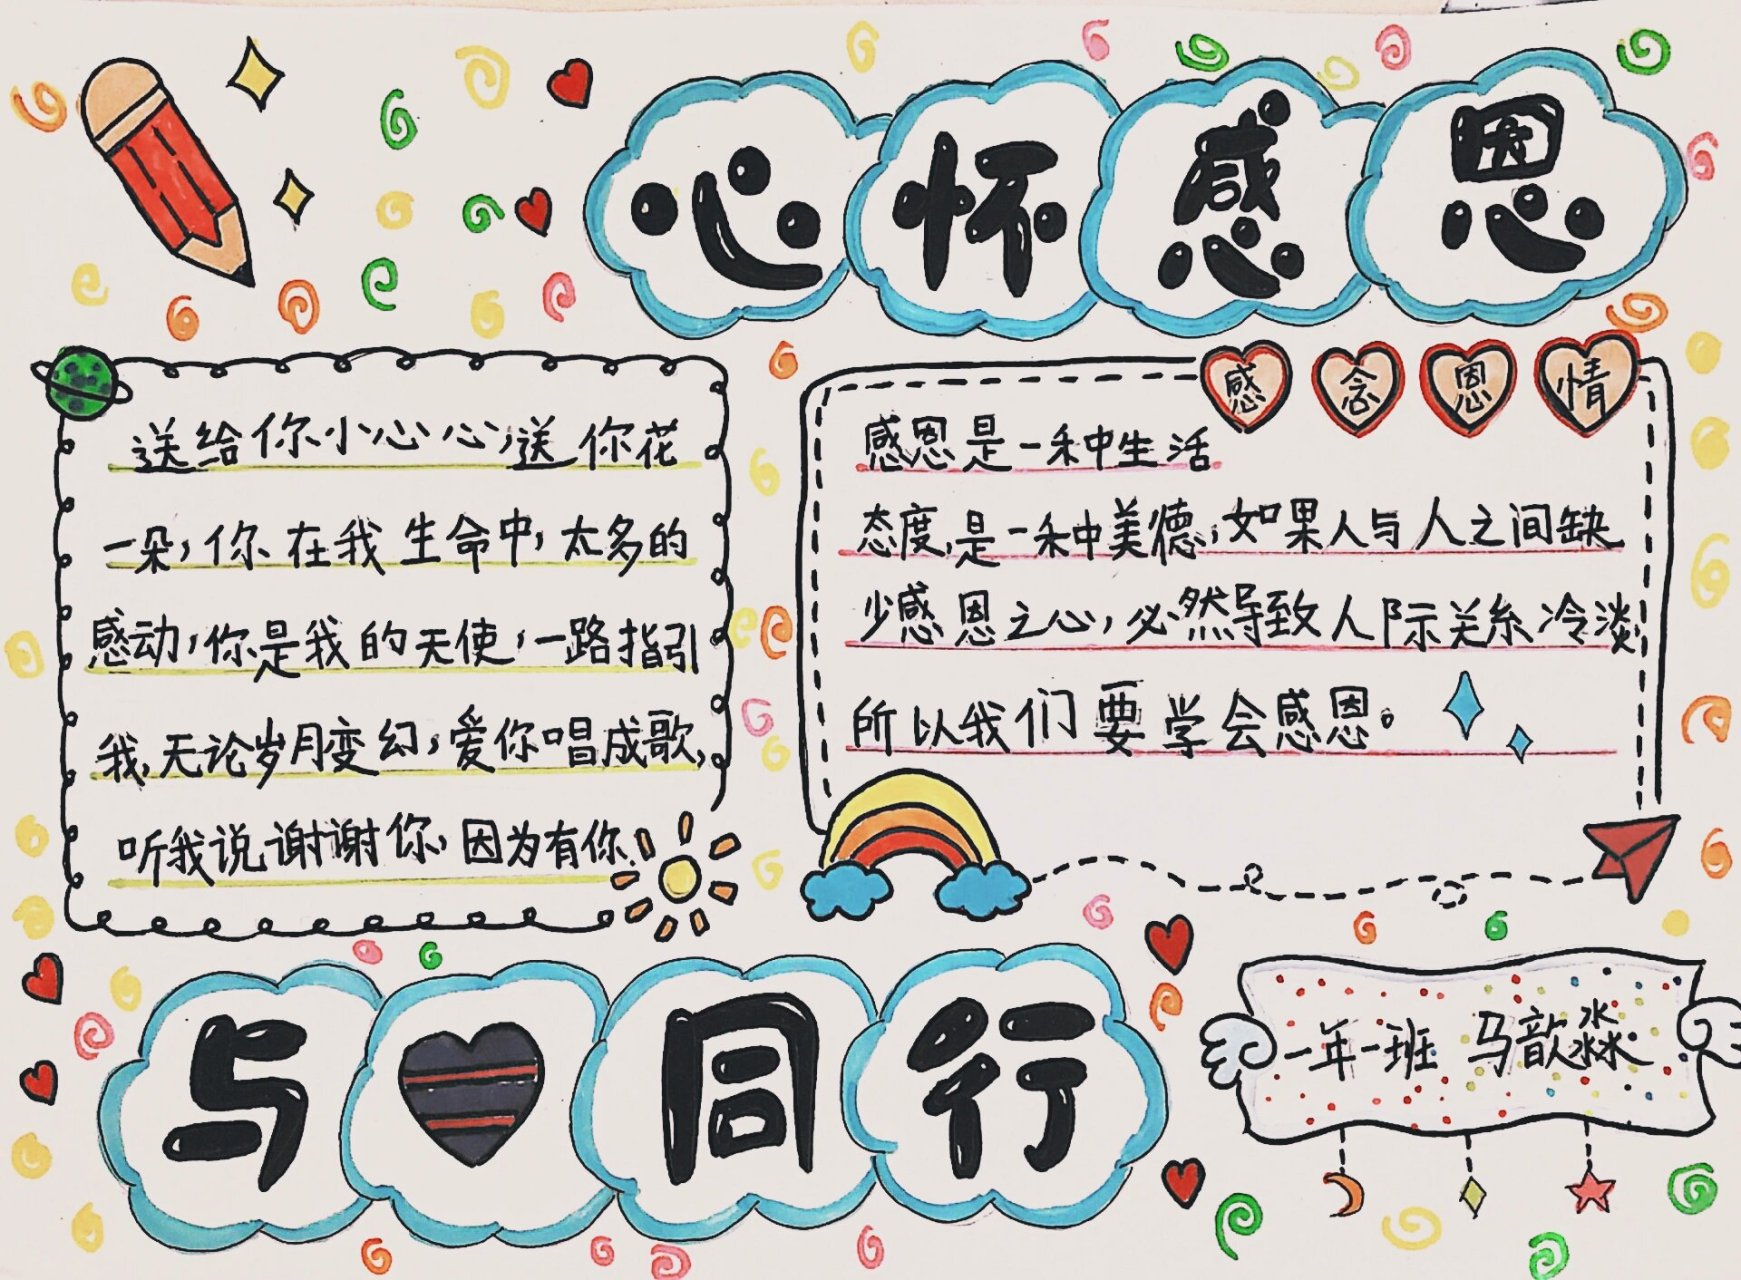 心怀感恩
送给你小心心,送你花
一朵,你在我生命中,太多的
感动,你是我的天使,一路指引
我,无论岁月变幻,爱你唱成歌,
听我说谢谢你,因为有你.
感念恩情
感恩是一种生活
态度,是一种美德,如果人与人之间缺
少感恩之心,必然导致人际关系冷淡,
所以我们要学会感恩。
与同行
一年一班 马歆淼